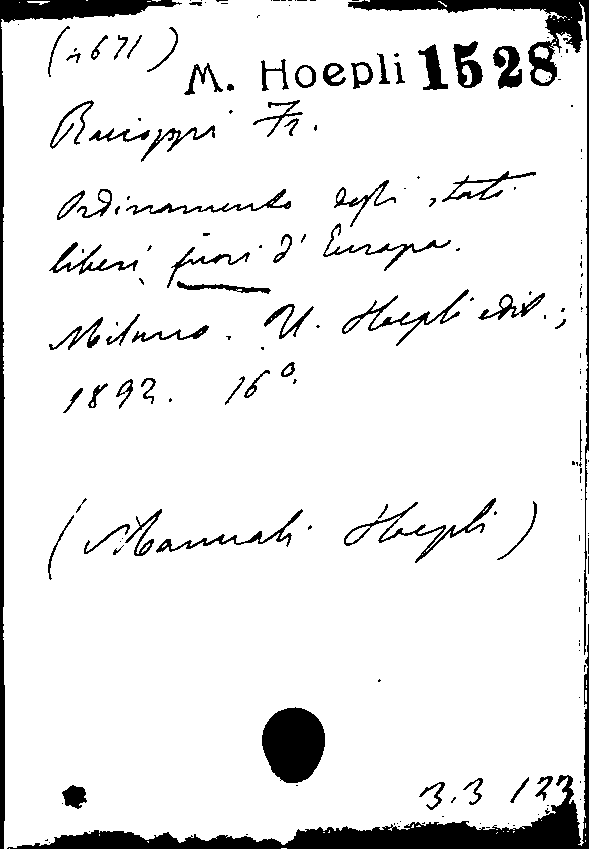 (n 671)
M. Hoepli 1528
Racioppi Fr.
Ordinamento degli stati
liberi fuori d' Europa.
Milano. U. Hoepli edit.;
1892. 16°.
(Manuali Hoepli)
3.3 123